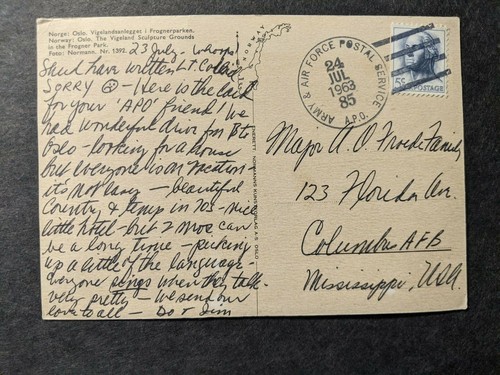 Norge: Oslo. Vigelandsanlegget i Frognerparken.
Norway: Oslo. The Vigeland Sculpture Grounds
in the Frogner Park.
Foto: Normann. Nr. 1392.
23 July - Whoops
Should have written Lt. Colonel
SORRY - Here is the card
for your 'APO' friend! We
had wonderful drive from
Oslo - looking for a house
but everyone is on vacation -
its not easy - beautiful
Country & temp in 70s - nice
little hotel - but 2 mos can
be a long time - picking
up a little of the language
everyone sings when they talk -
very pretty - we send our
love to all - Do & Jim
NORWAY
ARMY & AIR FORCE POSTAL SERVICE
24
JUL
1963
85
A.P.O.
5c
POSTAGE
Major A. O.
123 Florida Av.
Columbus AFB
Mississippi, USA.